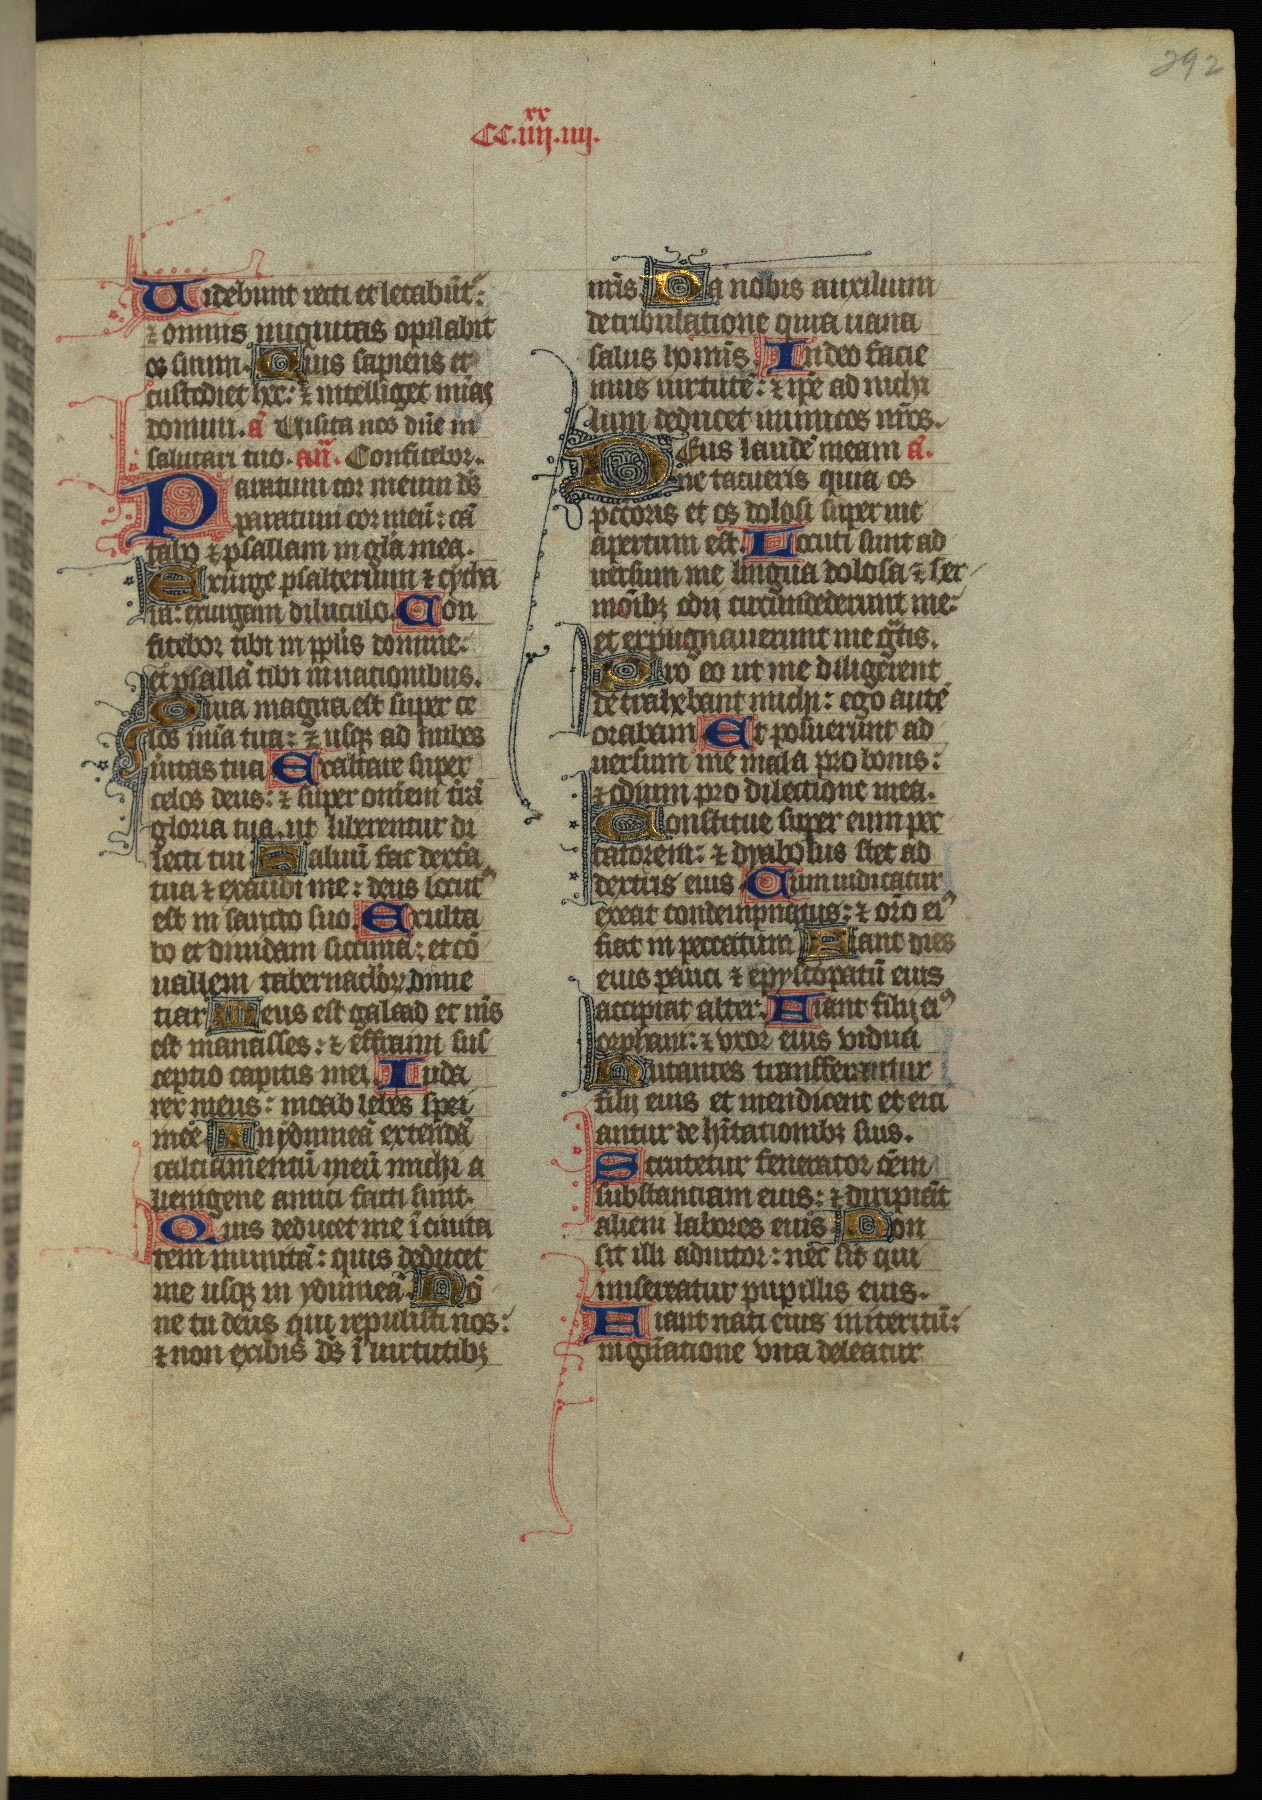 292
xx
CC.iiij.iiij.
Uidebunt recti et letabūt᷑:
⁊ omnis iniquitas opilabit
os suum. Quis sapiens et
custodiet hec: ⁊ intelliget mīas
domini. a᷑ Uisita nos dñe in
salutari tuo. añ. Confitebor.
Paratum cor meum ds̄
paratum cor meū: cā
tabo ⁊ psallam in gla mea.
Exurge psalterium ⁊ cytha
ra: exurgam diluculo. Con
fitebor tibi in pplis domine:
et psallā tibi in nationibus.
Quia magna est super ce
los mīa tua: ⁊ usqȝ ad nubes
ūitas tua Exaltare super
celos deus: ⁊ super omnem trā
gloria tua. ut liberentur di
lecti tui Saluū fac dextā
tua ⁊ exaudi me: deus locutꝰ
est in sancto suo. Exulta
bo et diuidam siccimā: et cō
uallem tabernaclōꝝ dime
tiar Meus est galaad et mīs
est manasses: ⁊ effraim sus
ceptio capitis mei. Iuda
rex meus: moab lebes spei
mee In ydumeā extendā
calciamentū meū michi a
lienigene amici facti sunt.
Quis deducet me ī ciuita
tem munitā: quis deducet
me usqȝ in ydumeā. Nō
ne tu deus qui repulisti nos:
⁊ non exibis ds̄ ī uirtutibȝ
nris̄. Da nobis auxilium
de tribulatione quia uana
salus homīs. In deo facie
mus uirtutē: ⁊ ip̄e ad nichi
lum deducet inimicos nr̄os.
Deus laudē meam a᷑.
ne tacueris quia os
pctōris et os dolosi super me
apertum est. Locuti sunt ad
uersum me lingua dolosa ⁊ ser
monībȝ odij circūdederunt me:
et expugnauerunt me gtis.
Pro eo ut me diligerent
detrahebant michi: ego autē
orabam Et posuerunt ad
uersum me mala pro bonis:
⁊ odium pro dilectione mea.
Constitue super eum pec
catorem: ⁊ dyabolus stet ad
dextris eius Cum iudicatur
exeat condempnatus: ⁊ orō eiꝰ
fiat in peccatum Fiant dies
eius pauci ⁊ epyscopatū eius
accipiat alter. Fiant filij eiꝰ
orphani: ⁊ vxor eius vidua
Nutantes transferantur
filij eius et mendicent et eici
antur de hītationibȝ suis.
Scrutetur fenerator oēm
substantiam eius: ⁊ diripiāt
alieni labores eius Non
sit illi adiutor: nec sit qui
misereatur pupillis eius.
Fiant nati eius in interitū:
in gnatione vna deleatur